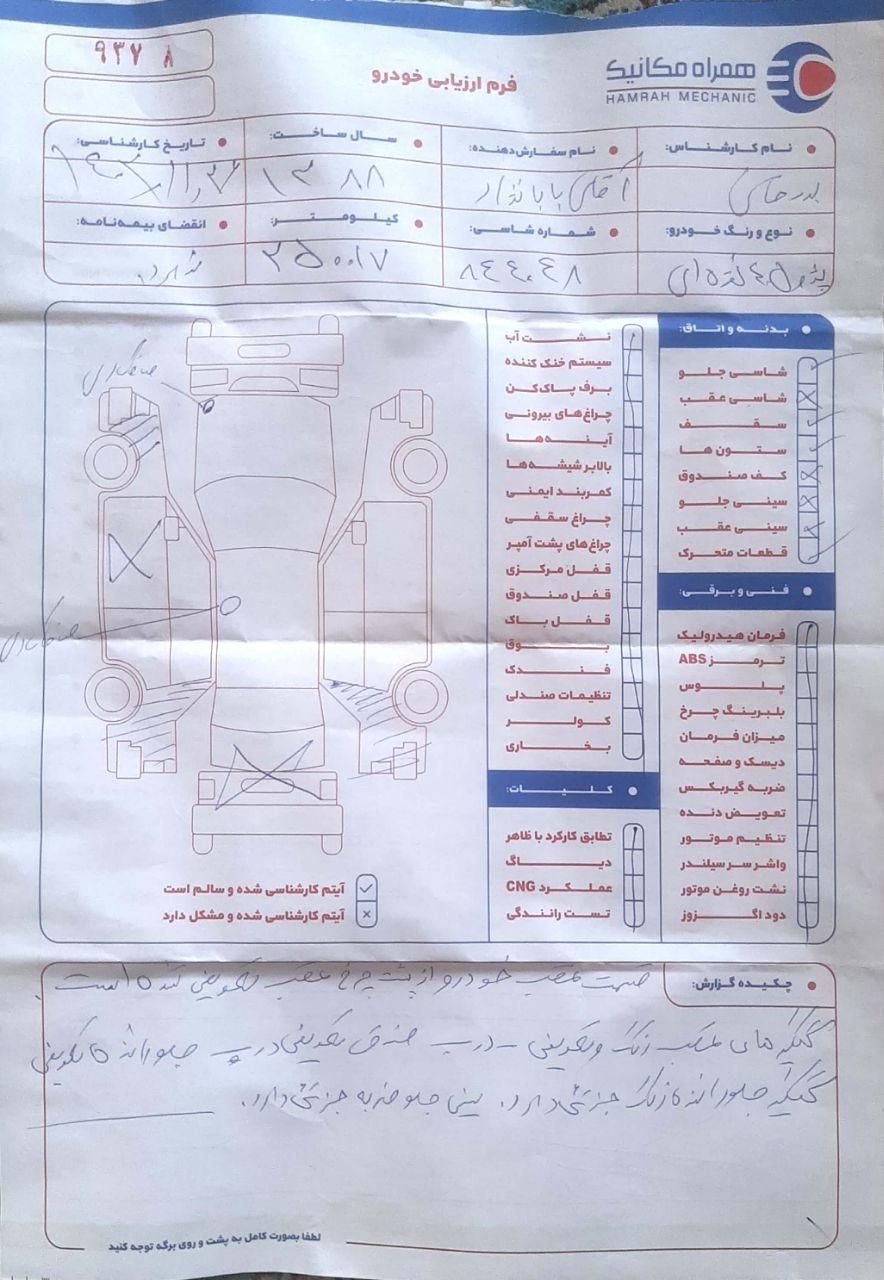 ۹۳۷۸
فرم ارزیابی خودرو
همراه مکانیک
HAMRAH MECHANIC
نام کارشناس:
نام سفارش‌دهنده:
سال ساخت:
تاریخ کارشناسی:
آقای
۱۳۸۸
نوع و رنگ خودرو:
شماره شاسی:
کیلومتر:
انقضای بیمه‌نامه:
پژو ۴۰۵ نقره‌ای
۸۴۴۰۴۸
۳۵۰۰۱۷
بدنه و اتاق:
شاسی جلو
شاسی عقب
سقف
ستون ها
کف صندوق
سینی جلو
سینی عقب
قطعات متحرک
فنی و برقی:
فرمان هیدرولیک
ترمز ABS
پلوس
بلبرینگ چرخ
میزان فرمان
دیسک و صفحه
ضربه گیربکس
تعویض دنده
تنظیم موتور
واشر سر سیلندر
نشت روغن موتور
دود اگزوز
نشت آب
سیستم خنک کننده
برف پاک‌کن
چراغ‌های بیرونی
آینه‌ها
بالابر شیشه‌ها
کمربند ایمنی
چراغ سقفی
چراغ‌های پشت آمپر
قفل مرکزی
قفل صندوق
قفل باک
بوق
فندک
تنظیمات صندلی
کولر
بخاری
کلیات:
تطابق کارکرد با ظاهر
دیاگ
عملکرد CNG
تست رانندگی
صافکاری
صافکاری
آیتم کارشناسی شده و سالم است
آیتم کارشناسی شده و مشکل دارد
چکیده گزارش:
قسمت عقب خودرو از پشت چرخ عقب تعویض شده است.
گلگیرهای عقب رنگ و تعویض - درب صندوق تعویض درب جلو راننده تعویض
گلگیر جلو راننده رنگ جزئی دارد. سینی جلو ضربه جزئی دارد.
لطفا بصورت کامل به پشت و روی برگه توجه کنید